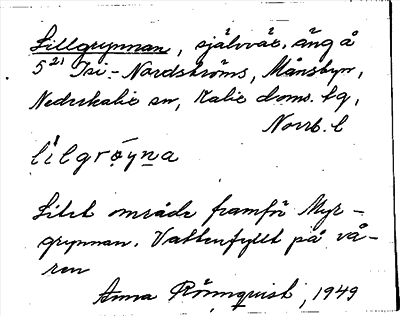 Lillgrynnan, självväx. äng å
5²¹ Isi-Nordströms, Månsbyn,
Nederkalix sn, Kalix doms. tg,
Norrb. l
lìlgrøyna
Litet område framför Myr-
grynnan. Vattenfyllt på vå-
ren
Anna Rönnquist, 1949